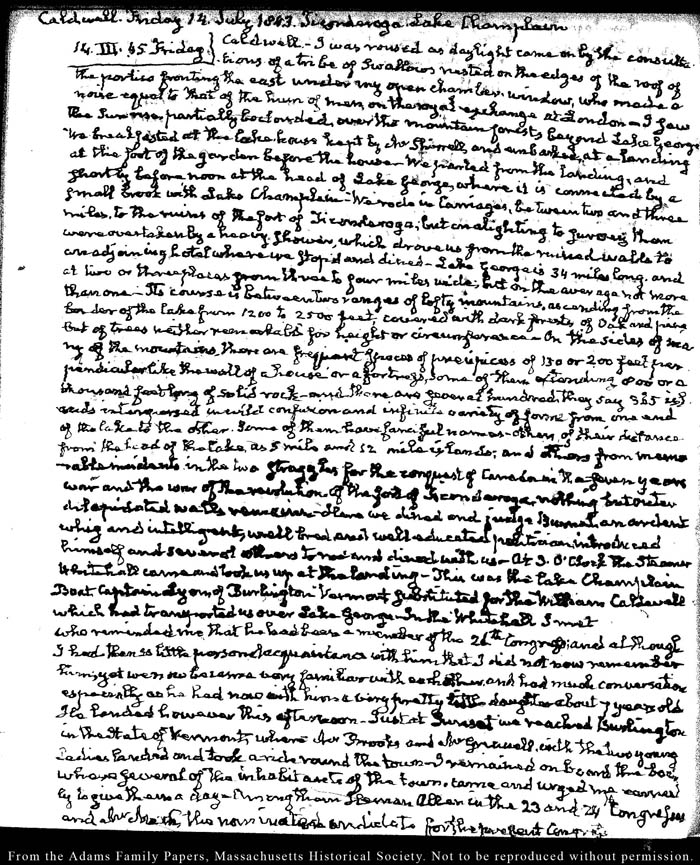 Caldwell. Friday 14. July 1843. Ticonderoga Lake Champlain
14. III. 45 Friday} Caldwell.- I was roused as daylight came on by the consulta-
tions of a tribe of Swallows nested on the edges of the roof of
the portico fronting the east under my open chamber window, who made a
noise equal to that of the hum of men on the royal exchange at London - I saw
the Sun rise, partially beclouded, over the mountain forests, beyond Lake George
We breakfasted at the Lake-house kept by Mr Sherrill, and embarked, at a landing
at the foot of the garden before the house. We started from the landing, and
shortly before noon at the head of Lake George, where it is connected by a
small brook with Lake Champlain - We rode in Carriages, between two and three
miles, to the ruins of the fort of Ticonderoga; but on alighting to survey them
were overtaken by a heavy shower, which drove us from the ruined walls to
an adjoining hotel where we stop'd and dined - Lake George is 34 miles long, and
at two or three places from three to four miles wide; but on the average not more
than one - Its course is between two ranges of lofty mountains, ascending from the
border of the lake from 1200 to 2500 feet, covered with dark forests of Oak and pine
but of trees neither remarkable for height or circumference - On the sides of ma-
ny of the mountains, there are frequent spaces of precipices of 150 or 200 feet per-
pendicular like the wall of a house or a fortress, some of them extending 800 or a
thousand feet long of solid rock - and there are several hundred, they say 365 isl-
ands interspersed in wild confusion and infinite variety of form from one end
of the lake to the other. Some of them have fanciful names - others, of their distance
from the head of the lake, as 5 mile and 12 mile islands; and others from memo-
rable incidents in the two struggles for the conquest of Canada in the seven years
war and the war of the revolution. Of the fort of Ticonderoga, nothing but outer
dilapidated walls remain - Here we dined and judge Burnet, an ancient
whig and intelligent, well bred and well educated politician, introduced
himself and several others to me and dined with us - At 3. O'Clock the Steamer
Whitehall came and took us up at the landing - This was the Lake Champlain
Boat Captain Lyon of Burlington Vermont substituted for the William Caldwell
which had transported us over Lake George - In the Whitehall I met
who reminded me that he had been a member of the 26th Congress; and although
I had then so little personal acquaintance with him, that I did not now remember
him, yet we now became very familiar with each other, and had much conversation
especially as he had now with him a very pretty little daughter about 7 years old
He landed however this afternoon - Just at Sunset we reached Burlington
in the State of Vermont, where Mr Brooks and Mr Grinnell, with the two young
Ladies landed and took a ride round the town - I remained on board the boat
where several of the inhabitants of the town, came and urged me earnest-
ly to give them a day - Among them Heman Allen in the 23 and 24th Congress
and Mr the nominated candidate for the present Congress
From the Adams Family Papers, Massachusetts Historical Society. Not to be reproduced without permission.